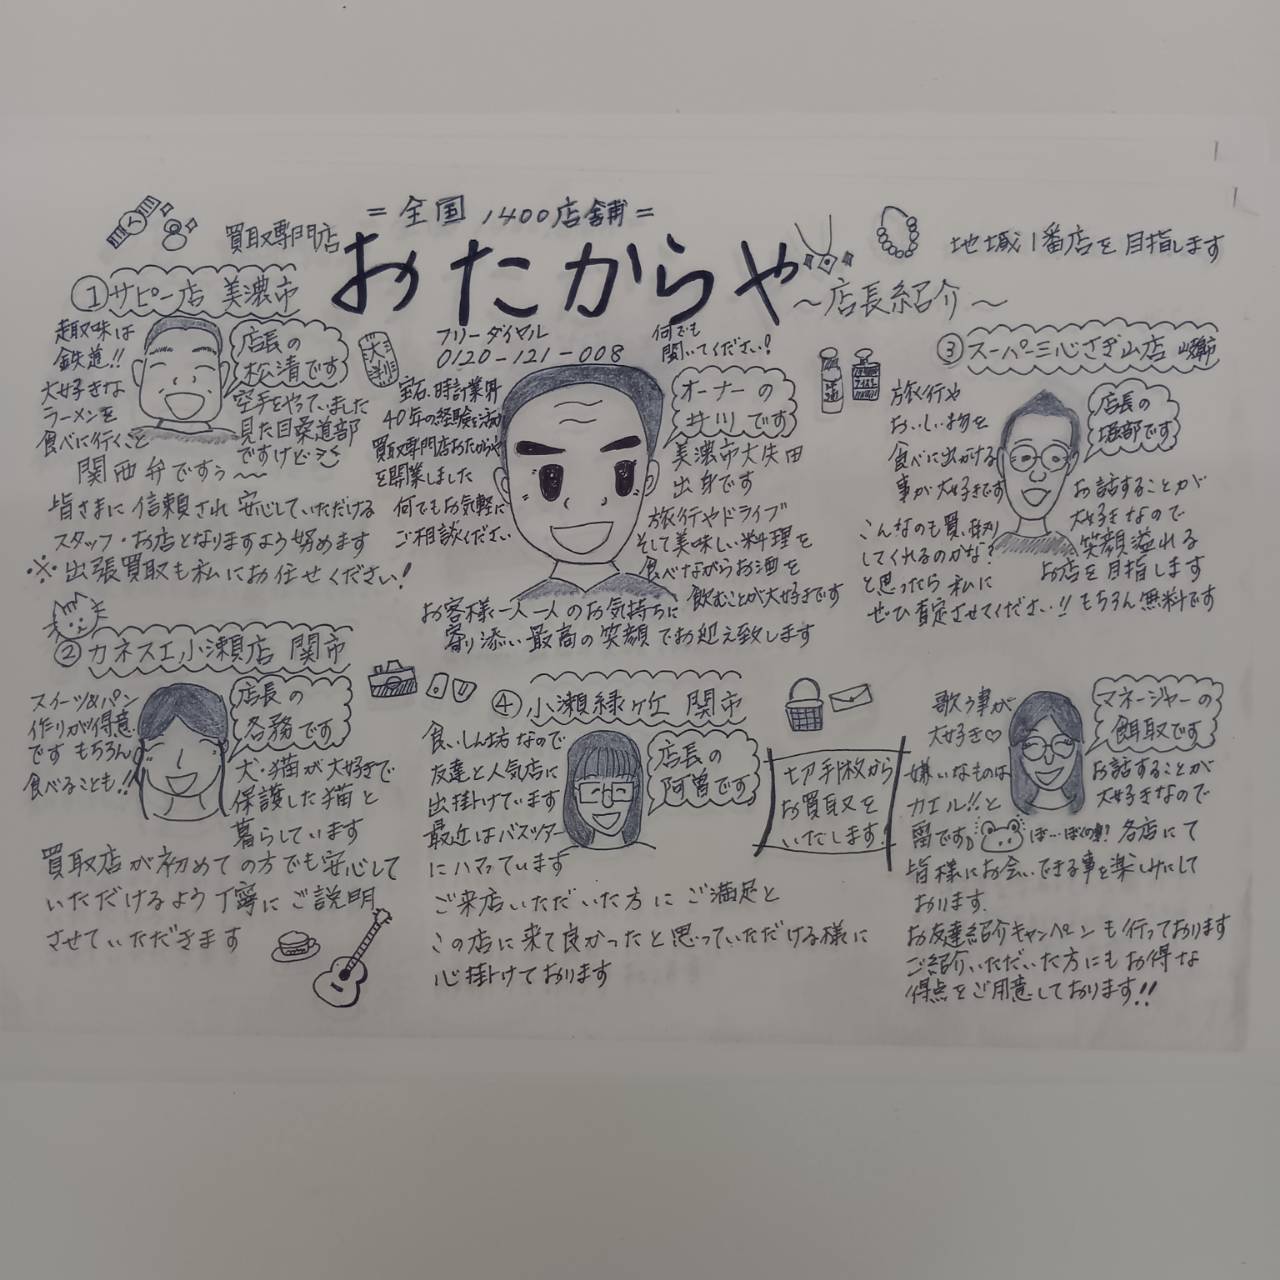 =全国 1400店舗=
買取専門店
おたからや
～店長紹介～
地域1番店を目指します
①サピー店 美濃市
趣味は
鉄道!!
大好きな
ラーメンを
食べに行くこと
店長の
松清です
空手をやっていました
見た目柔道部
ですけど
関西弁ですぅ～
皆さまに信頼され安心していただける
スタッフ・お店となりますよう努めます
※出張買取も私にお任せください!
大判
フリーダイヤル
0120-121-008
何でも
聞いてください!
宝石、時計業界
40年の経験を活かし
買取専門店おたからや
を開業しました
何でもお気軽に
ご相談ください
オーナーの
井川です
美濃市大矢田
出身です
旅行やドライブ
そして美味しい料理を
食べながらお酒を
飲むことが大好きです
お客様一人一人のお気持ちに
寄り添い最高の笑顔でお迎え致します
③スーパー三心さぎ山店 岐阜市
旅行や
おいしい物を
食べに出かける
事が大好きです
店長の
堀部です
お話することが
大好きなので
笑顔溢れる
お店を目指します
こんなのも買い取り
してくれるのかな?
と思ったら私に
ぜひ査定させてください!!もちろん無料です
②カネスエ小瀬店 関市
スイーツ&パン
作りが得意
です もちろん
食べることも!!
店長の
各務です
犬・猫が大好きで
保護した猫と
暮らしています
買取店が初めての方でも安心して
いただけるよう丁寧にご説明
させていただきます
④小瀬緑ヶ丘 関市
食いしん坊なので
友達と人気店に
出掛けています
最近はバスツアー
にハマっています
店長の
阿曽です
切手1枚から
お買取を
いたします!
ご来店いただいた方にご満足と
この店に来て良かったと思っていただける様に
心掛けております
歌う事が
大好き♡
嫌いなものは
カエル!!と
雷です
マネージャーの
餌取です
お話することが
大好きなので
ぼ…ぼくの事!
各店にて
皆様にお会いできる事を楽しみにして
おります。
お友達紹介キャンペーンも行っております
ご紹介いただいた方にもお得な
得点をご用意しております!!